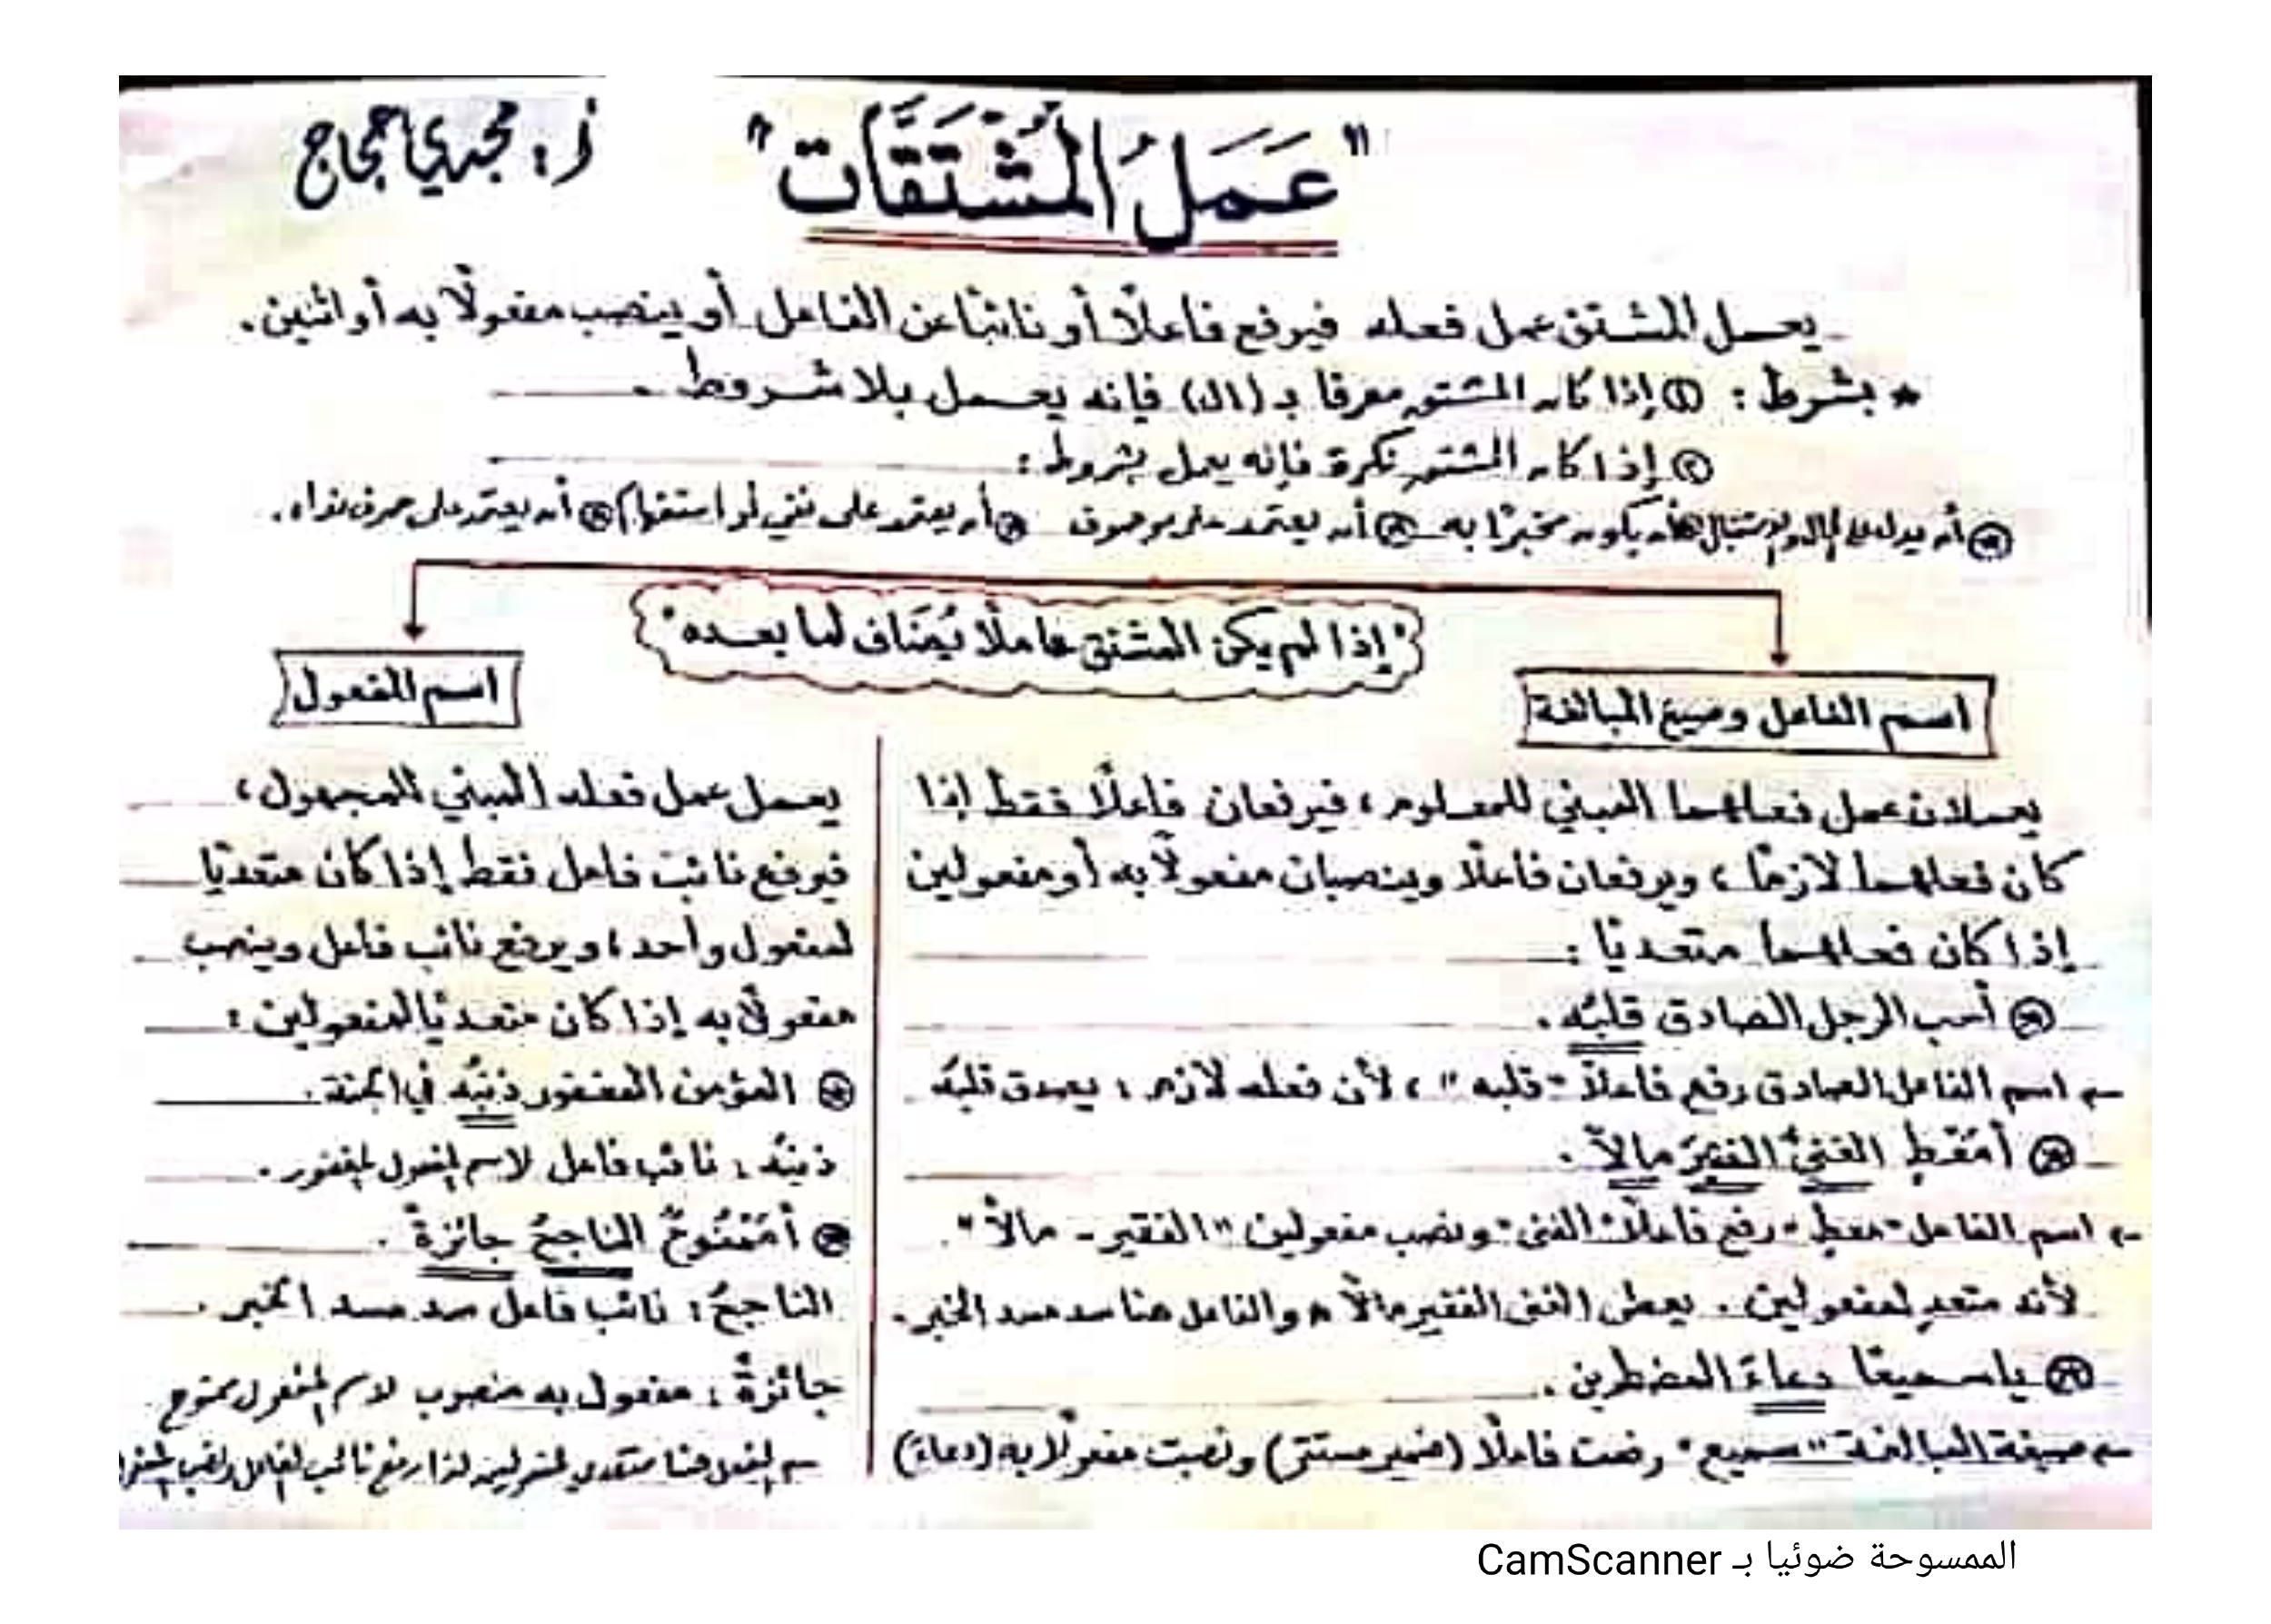 "عَمَلُ المُشْتَقَّات"
أ: مجدي حجاج
يعمل المشتق عمل فعله فيرفع فاعلًا أو نائبًا عن الفاعل أو ينصب مفعولًا به أو اثنين.
* بشرط: ① إذا كان المشتق معرفا بـ (ال) فإنه يعمل بلا شروط.
② إذا كان المشتق نكرة فإنه يعمل بشروط:
أن يدل على الحال أو الاستقبال أن يكون مخبرًا به أن يعتمد على موصوف أن يعتمد على نفي أو استفهام أن يعتمد على حرف نداء.
"إذا لم يكن المشتق عاملًا يُضَاف لما بعده"
اسم الفاعل وصيغ المبالغة
يعملان عمل فعلهما المبني للمعلوم، فيرفعان فاعلًا فقط إذا
كان فعلهما لازمًا، ويرفعان فاعلًا وينصبان مفعولًا به أو مفعولين
إذا كان فعلهما متعديًا:
أحب الرجل الصادق قلبُه.
اسم الفاعل الصادق رفع فاعلًا "قلبه"، لأن فعله لازم: يصدق قلبُه
أمُعْطٍ الغنيُّ الفقيرَ مالًا.
اسم الفاعل "معطٍ" رفع فاعلًا "الغنى" ونصب مفعولين "الفقير - مالًا".
لأنه متعدٍ لمفعولين. يعطى الغنى الفقير مالًا والفاعل هنا سد مسد الخبر.
يا سميعًا دعاءَ المضطرين.
صيغة المبالغة "سميع" رفعت فاعلًا (ضمير مستتر) ونصبت مفعولًا به (دعاءَ)
اسم المفعول
يعمل عمل فعله المبني للمجهول،
فيرفع نائب فاعل فقط إذا كان متعديًا
لمفعول واحد، ويرفع نائب فاعل وينصب
مفعولًا به إذا كان متعديًا لمفعولين:
المؤمن المغفور ذنبُه في الجنة.
ذنبُه: نائب فاعل لاسم المفعول المغفور.
أمَمْنُوحٌ الناجحُ جائزةً.
الناجحُ: نائب فاعل سد مسد الخبر.
جائزةً: مفعول به منصوب لاسم المفعول ممنوح.
الفعل هنا متعدي لمفعولين لذا رفع نائب الفاعل ونصب
الممسوحة ضوئيا بـ CamScanner